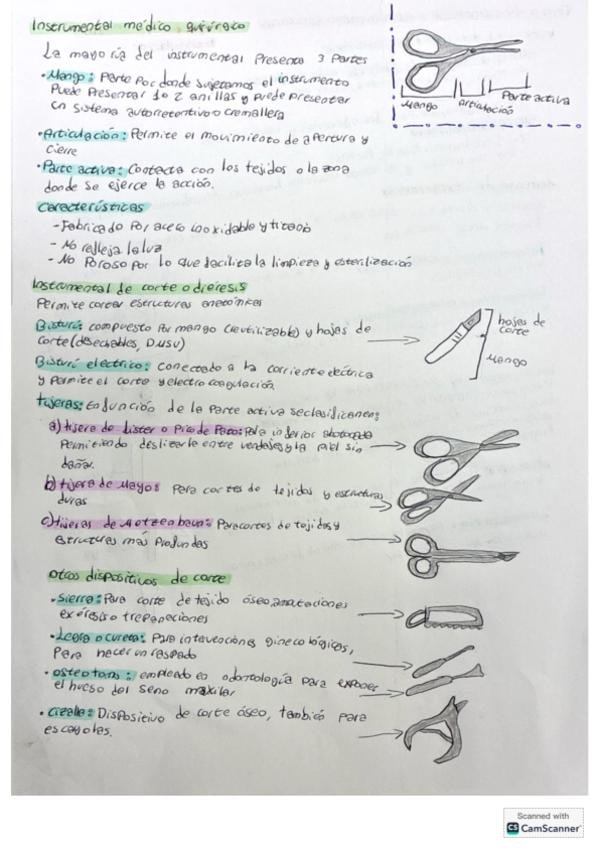 Instrumental médico quirúrgico
La mayoría del instrumental Presenta 3 Partes
• Mango: Parte Por donde sujetamos el instrumento
Puede Presentar 1 o 2 anillas y puede presentar
un sistema autorretentivo o cremallera
• Articulación: Permite el movimiento de apertura y
cierre
• Parte activa: Contacta con los tejidos o la zona
donde se ejerce la acción.
Mango
Articulación
Parte activa
Características
- Fabricado Por acero inoxidable y titanio
- No refleja la luz
- No Poroso por lo que facilita la limpieza y esterilización
Instrumental de corte o diéresis
Permite cortar estructuras anatómicas
Bisturí: compuesto Por mango (reutilizable) y hojas de
corte (desechables, D.M.S.U)
hojas de
corte
Mango
Bisturí electrico: conectado a la corriente eléctrica
y permite el corte y electrocoagulación
Tijeras: En función de la Parte activa se clasifican en:
a) tijera de Lister o Pico de Pato: Pala inferior abotonada
Permitiendo deslizarla entre vendajes y la piel sin
dañar.
b) tijera de Mayo: Para cortes de tejidos y estructuras
duras
c) tijeras de Metzenbaun: Para cortes de tejidos y
estructuras más Profundas
Otros dispositivos de corte
• Sierra: Para corte de tejido óseo, amputaciones
exéresis o trepanaciones
• Legra o cureta: Para intervenciones ginecológicas,
Para hacer un raspado
• Osteotomo: empleado en odontología para exponer
el hueso del seno maxilar
• Cizalla: Dispositivo de corte óseo, también para
escayolas.
Scanned with
CS CamScanner